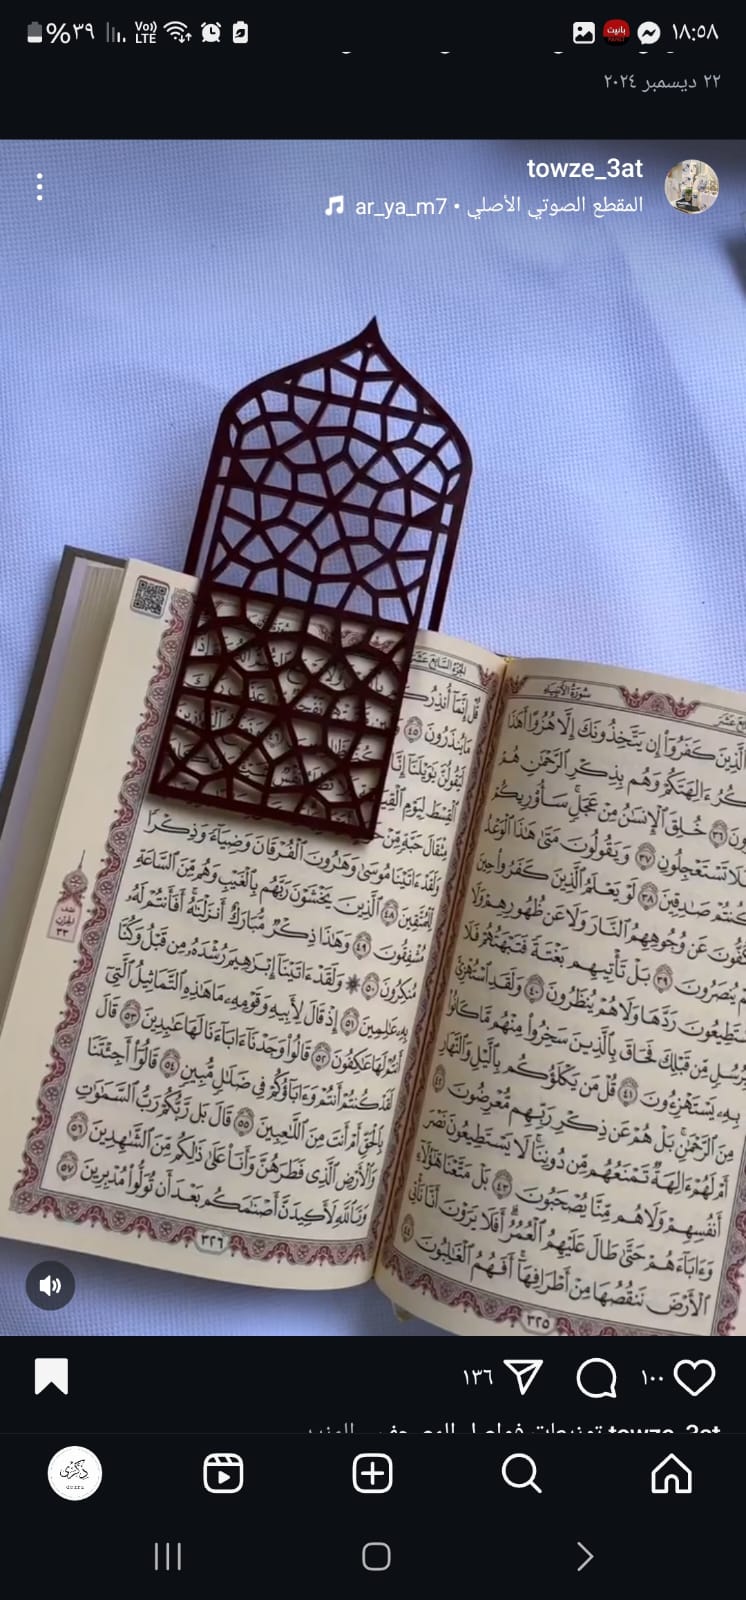 %٣٩
Vo))
LTE
بانيت
١٨:٥٨
٢٢ ديسمبر ٢٠٢٤
towze_3at
المقطع الصوتي الأصلي • ar_ya_m7
سورة الأنبياء
الَّذِينَ كَفَرُوا إِن يَتَّخِذُونَكَ إِلَّا هُزُوًا أَهَٰذَا
ءَالِهَتَكُمْ وَهُم بِذِكْرِ الرَّحْمَٰنِ هُمْ
٣٦ خُلِقَ الْإِنسَانُ مِنْ عَجَلٍ سَأُوْرِيكُمْ
تَسْتَعْجِلُونِ ٣٧ وَيَقُولُونَ مَتَىٰ هَٰذَا الْوَعْدُ
كُنتُمْ صَادِقِينَ ٣٨ لَوْ يَعْلَمُ الَّذِينَ كَفَرُوا حِينَ
عَن وُجُوهِهِمُ النَّارَ وَلَا عَن ظُهُورِهِمْ وَلَا
يُنصَرُونَ ٣٩ بَلْ تَأْتِيهِم بَغْتَةً فَتَبْهَتُهُمْ فَلَا
رَدَّهَا وَلَا هُمْ يُنظَرُونَ ٤٠ وَلَقَدِ اسْتُهْزِئَ
مِّن قَبْلِكَ فَحَاقَ بِالَّذِينَ سَخِرُوا مِنْهُم مَّا كَانُوا
بِهِ يَسْتَهْزِءُونَ ٤١ قُلْ مَن يَكْلَؤُكُم بِاللَّيْلِ وَالنَّهَارِ
مِنَ الرَّحْمَٰنِ بَلْ هُمْ عَن ذِكْرِ رَبِّهِم مُّعْرِضُونَ ٤٢
أَمْ لَهُمْ ءَالِهَةٌ تَمْنَعُهُم مِّن دُونِنَا لَا يَسْتَطِيعُونَ نَصْرَ
أَنفُسِهِمْ وَلَا هُم مِّنَّا يُصْحَبُونَ ٤٣ بَلْ مَتَّعْنَا هَٰؤُلَاءِ
وَءَابَاءَهُمْ حَتَّىٰ طَالَ عَلَيْهِمُ الْعُمُرُ أَفَلَا يَرَوْنَ أَنَّا نَأْتِي
الْأَرْضَ نَنقُصُهَا مِنْ أَطْرَافِهَا أَفَهُمُ الْغَالِبُونَ ٤٤
٣٢٥
الجزء السابع عشر
قُلْ إِنَّمَا أُنذِرُكُم
مَا يُنذَرُونَ ٤٥
لَيَقُولُنَّ يَٰوَيْلَنَا إِنَّا
الْقِسْطَ لِيَوْمِ
مِثْقَالَ حَبَّةٍ مِّنْ
وَلَقَدْ ءَاتَيْنَا مُوسَىٰ وَهَٰرُونَ الْفُرْقَانَ وَضِيَاءً وَذِكْرًا
لِّلْمُتَّقِينَ ٤٨ الَّذِينَ يَخْشَوْنَ رَبَّهُم بِالْغَيْبِ وَهُم مِّنَ السَّاعَةِ
مُشْفِقُونَ ٤٩ وَهَٰذَا ذِكْرٌ مُّبَارَكٌ أَنزَلْنَٰهُ أَفَأَنتُمْ لَهُ
مُنكِرُونَ ٥٠ وَلَقَدْ ءَاتَيْنَا إِبْرَٰهِيمَ رُشْدَهُ مِن قَبْلُ وَكُنَّا
بِهِ عَٰلِمِينَ ٥١ إِذْ قَالَ لِأَبِيهِ وَقَوْمِهِ مَا هَٰذِهِ التَّمَاثِيلُ الَّتِي
أَنتُمْ لَهَا عَٰكِفُونَ ٥٢ قَالُوا وَجَدْنَا ءَابَاءَنَا لَهَا عَٰبِدِينَ ٥٣ قَالَ
لَقَدْ كُنتُمْ أَنتُمْ وَءَابَاؤُكُمْ فِي ضَلَٰلٍ مُّبِينٍ ٥٤ قَالُوا أَجِئْتَنَا
بِالْحَقِّ أَمْ أَنتَ مِنَ اللَّٰعِبِينَ ٥٥ قَالَ بَل رَّبُّكُمْ رَبُّ السَّمَٰوَٰتِ
وَالْأَرْضِ الَّذِي فَطَرَهُنَّ وَأَنَا عَلَىٰ ذَٰلِكُم مِّنَ الشَّٰهِدِينَ ٥٦
وَتَاللَّهِ لَأَكِيدَنَّ أَصْنَٰمَكُم بَعْدَ أَن تُوَلُّوا مُدْبِرِينَ ٥٧
٣٢٦
نصف
الحزب
٣٣
١٣٦
١٠٠
ذكرى